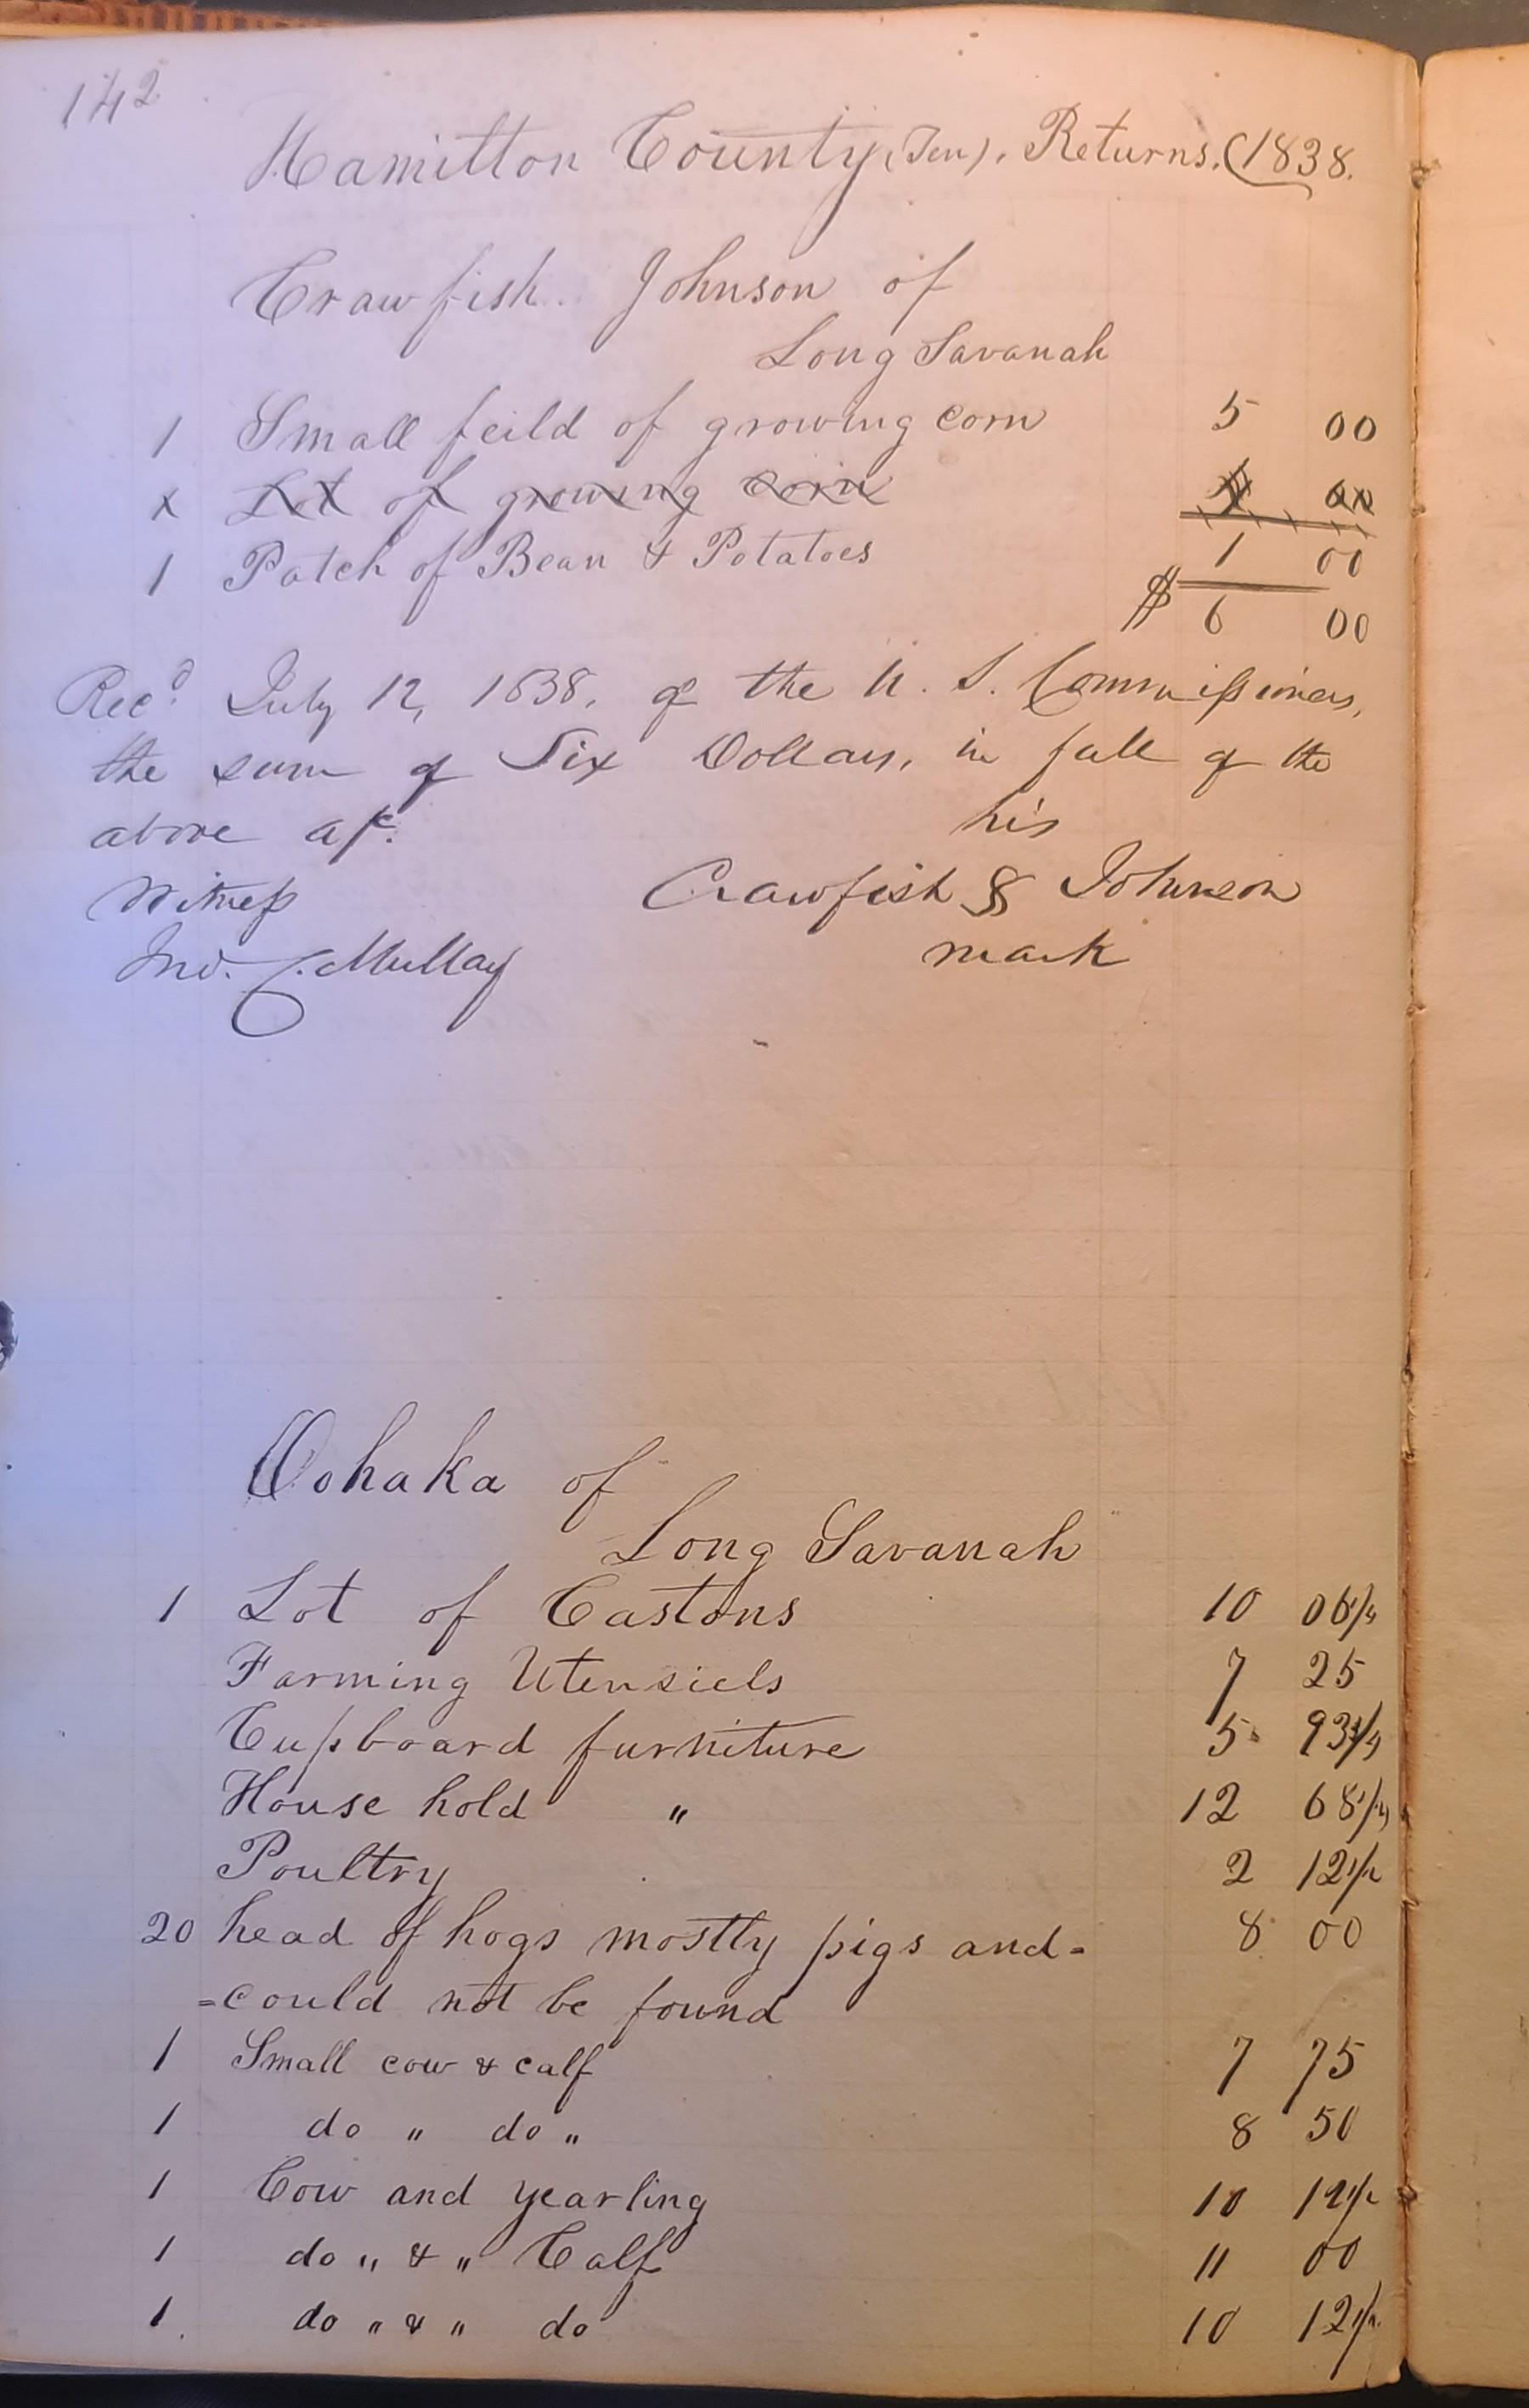 142
Hamilton County, (Ten), Returns. (1838.
Crawfish Johnson of
Long Savanah
1 Small feild of growing corn 5 00
x Lot of growing corn
1 Patch of Bean & Potatoes 1 00
$ 6 00
Recd. July 12, 1838, of the U. S. Commissioners,
the sum of Six Dollars, in full of the
above a/c.
his
Witness Crawfish Johnson
Jno. C. Mullay mark
Oohaka of
Long Savanah
1 Lot of Castons 10 06 1/4
Farming Utensiels 7 25
Cupboard furniture 5 93 3/4
House hold " 12 68 1/4
Poultry 2 12 1/2
20 head of hogs mostly pigs and= 8 00
=could not be found
1 Small cow & calf 7 75
1 do " do " 8 50
1 Cow and yearling 10 12 1/2
1 do " & " Calf 11 00
1 do " & " do 10 12 1/2